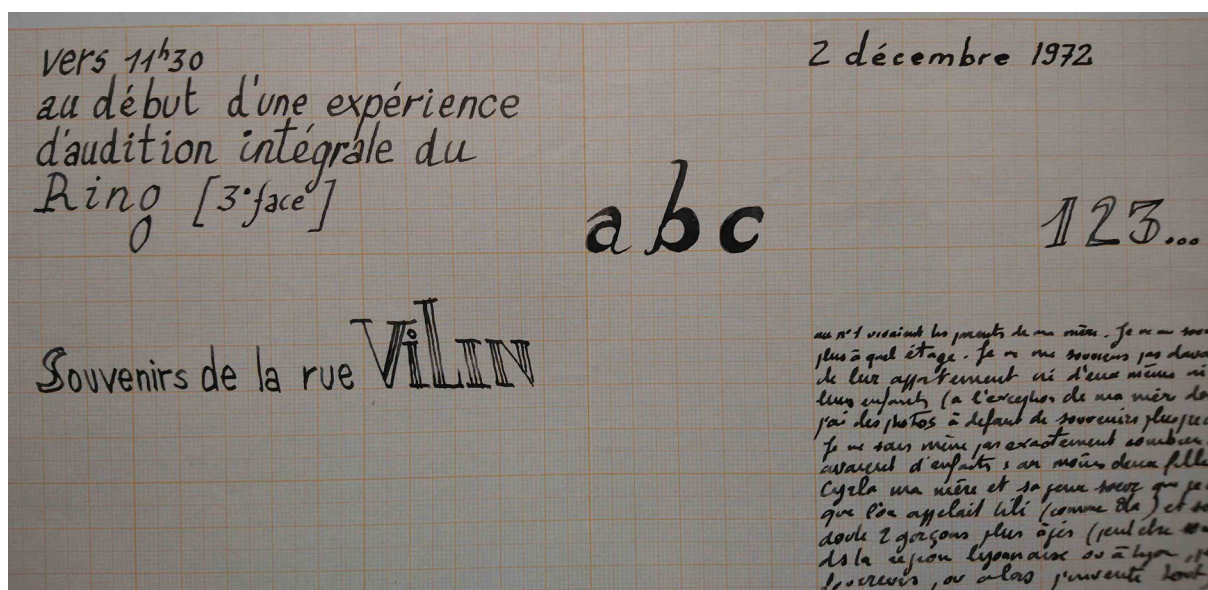 vers 11h30
au début d'une expérience
d'audition intégrale du
Ring [3e face]
2 décembre 1972
abc
123...
Souvenirs de la rue ViLIN
au n°1 vivaient les parents de ma mère. Je ne me
plus à quel étage. Je ne me souviens pas
de leur appartement ni d'eux mêmes ni
leurs enfants (à l'exception de ma mère
j'ai des photos à défaut de souvenirs plus
Je ne sais même pas exactement combien
avaient d'enfants : au moins deux
Cyrla ma mère et sa jeune soeur que je
que l'on appelait Lili (comme Ela) et
doute 2 garçons plus âgés (peut être
ds la région lyonnaise ou à Lyon
ou alors j'invente tout